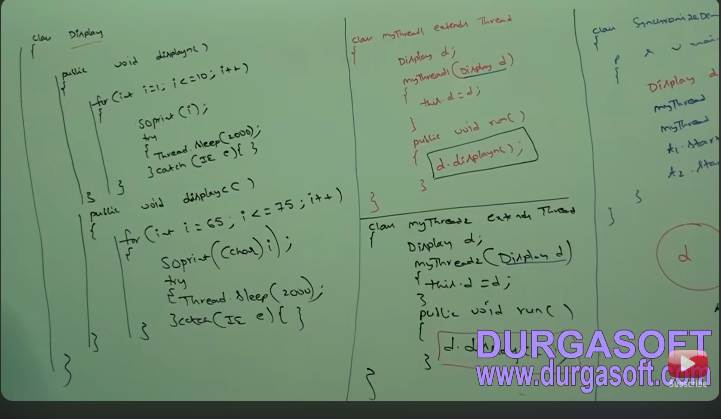 class Display
{
public void displayn()
{
for(int i=1; i<=10; i++)
{
Soprint(i);
try
{ Thread.sleep(2000);
} catch (IE e) { }
}
}
public void displayc()
{
for(int i=65; i<=75; i++)
{
Soprint((char)i);
try
{ Thread.sleep(2000);
} catch (IE e) { }
}
}
}
class myThread1 extends Thread
{
Display d;
myThread1(Display d)
{
this.d=d;
}
public void run()
{
d.displayn();
}
}
class myThread2 extends Thread
{
Display d;
myThread2(Display d)
{
this.d=d;
}
public void run()
{
}
}
class
{
p s v
{
Display d
myThread
myThread
t1.start
t2.start
}
}
d
DURGASOFT
www.durgasoft.com
Subscribe